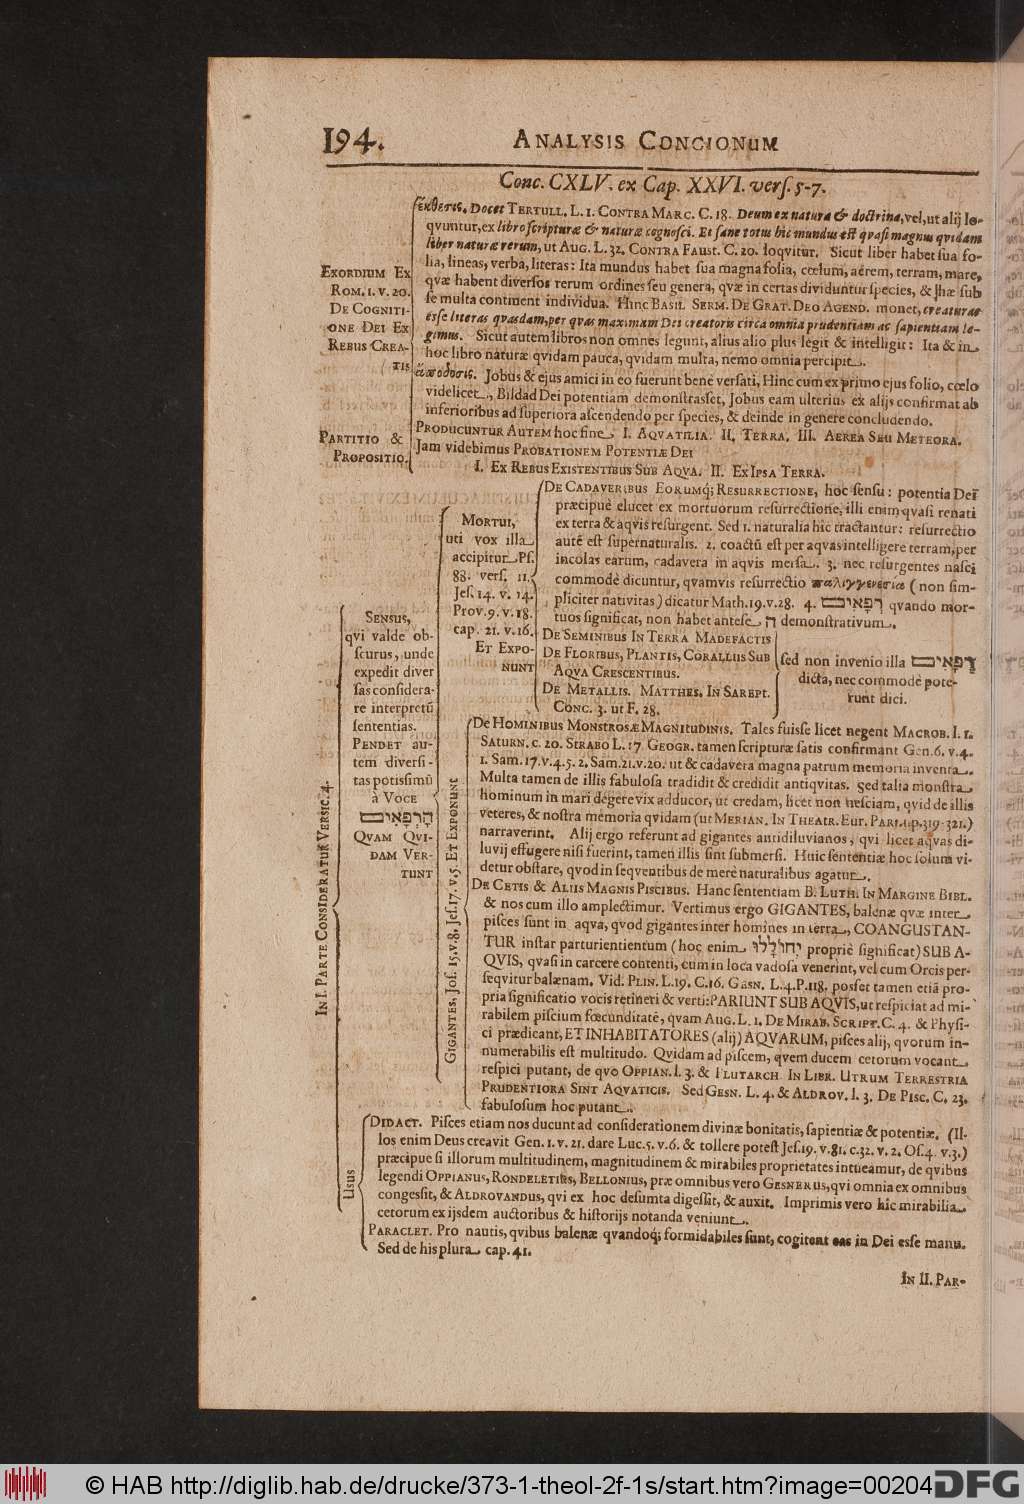 194.
ANALYSIS CONCIONUM
Conc. CXLV. ex Cap. XXVI. vers. 5-7.
EXORDIUM EX
ROM. 1. v. 20.
DE COGNITI-
ONE DEI EX
REBUS CREA-
TIS
ἔκθεσις. Docet TERTULL. L. 1. CONTRA MARC. C. 18. Deum ex natura & doctrina, vel, ut alij lo-
qvuntur, ex libro scripturæ & naturæ cognosci. Et sane totus hic mundus est qvasi magnus qvidam
liber naturæ rerum, ut AUG. L. 32. CONTRA FAUST. C. 20. loqvitur. Sicut liber habet sua fo-
lia, lineas, verba, literas: Ita mundus habet sua magna folia, cœlum, aërem, terram, mare,
qvæ habent diversos rerum ordines seu genera, qvæ in certas dividuntur species, & hæ sub
se multa continent individua. Hinc BASIL SERM. DE GRAT. DEO AGEND. monet, creaturas
esse literas qvasdam, per qvas maximam Dei creatoris circa omnia prudentiam ac sapientiam le-
gimus. Sicut autem libros non omnes legunt, alius alio plus legit & intelligit: Ita & in
hoc libro naturæ qvidam pauca, qvidam multa, nemo omnia percipit.
ἀπόδοσις. Jobus & ejus amici in eo fuerunt bene versati, Hinc cum ex primo ejus folio, cœlo
videlicet, Bildad Dei potentiam demonstrasset, Jobus eam ulterius ex alijs confirmat ab
inferioribus ad superiora ascendendo per species, & deinde in genere concludendo.
PARTITIO &
PROPOSITIO.
PRODUCUNTUR AUTEM hoc fine, I. AQVATILIA. II. TERRA. III. AEREA SEU METEORA.
Jam videbimus PROBATIONEM POTENTIÆ DEI
I. EX REBUS EXISTENTIBUS SUB AQVA. II. EX IPSA TERRA.
IN I. PARTE CONSIDERATUR VERSIC. 4.
SENSUS,
qvi valde ob-
scurus, unde
expedit diver
sas considera-
re interpretū
sententias.
PENDET au-
tem diversi-
tas potissimū
à VOCE
הָרְפָאִים
QVAM QVI-
DAM VER-
TUNT
MORTUI,
uti vox illa
accipitur Ps.
88. vers. 11.
Jes. 14. v. 14.
Prov. 9. v. 18.
cap. 21. v. 16.
ET EXPO-
NUNT
DE CADAVERIBUS EORUMq; RESURRECTIONE, hoc sensu: potentia Dei
præcipuè elucet ex mortuorum resurrectione, illi enim qvasi renati
ex terra & aqvis resurgent. Sed 1. naturalia hic tractantur: resurrectio
autē est supernaturalis. 2. coactū est per aqvas intelligere terram, per
incolas earum, cadavera in aqvis mersa. 3. nec resurgentes nasci
commodè dicuntur, qvamvis resurrectio παλιγγενεσία (non sim-
pliciter nativitas) dicatur Math. 19. v. 28. 4. רְפָאִים qvando mor-
tuos significat, non habet ante se ה demonstrativum.
DE SEMINIBUS IN TERRA MADEFACTIS
DE FLORIBUS, PLANTIS, CORALLUS SUB
AQVA CRESCENTIBUS.
DE METALLIS. MATTHES. IN SAREPT.
CONC. 3. ut F. 28.
sed non invenio illa רְפָאִים
dicta, nec commodè pote-
runt dici.
GIGANTES, Jos. 15. v. 8. Jes. 17. v. 5. ET EXPONUNT
DE HOMINIBUS MONSTROSÆ MAGNITUDINIS. Tales fuisse licet negent MACROB. l. 1.
SATURN. c. 20. STRABO L. 17. GEOGR. tamen scripturæ satis confirmant Gen. 6. v. 4.
1. Sam. 17. v. 4. 5. 2. Sam. 21. v. 20. ut & cadavera magna patrum memoria inventa.
Multa tamen de illis fabulosa tradidit & credidit antiqvitas. Sed talia monstra
hominum in mari degere vix adducor, ut credam, licet non nesciam, qvid de illis
veteres, & nostra memoria qvidam (ut MERIAN. IN THEATR. Eur. PART. 1. p. 319-321.)
narraverint. Alij ergo referunt ad gigantes antidiluvianos, qvi licet aqvas di-
luvij effugere nisi fuerint, tamen illis sint submersi. Huic sententiæ hoc solum vi-
detur obstare, qvod in seqventibus de merè naturalibus agatur.
DE CETIS & ALIIS MAGNIS PISCIBUS. Hanc sententiam B. LUTH. IN MARGINE BIBL.
& nos cum illo amplectimur. Vertimus ergo GIGANTES, balenæ qvæ inter
pisces sunt in aqva, qvod gigantes inter homines in terra, COANGUSTAN-
TUR instar parturientientum (hoc enim יְחוֹלָלוּ propriè significat) SUB A-
QVIS, qvasi in carcere contenti, cum in loca vadosa venerint, vel cum Orcis per-
seqvitur balænam. Vid. PLIN. L. 19. C. 16. GESN. L. 4. P. 118. posset tamen etiā pro-
pria significatio vocis retineri & verti: PARIUNT SUB AQVIS, ut respiciat ad mi-
rabilem piscium fœcunditatē, qvam AUG. L. 1. DE MIRAB. SCRIPT. C. 4. & Physi-
ci prædicant, ET INHABITATORES (alij) AQVARUM, pisces alij, qvorum in-
numerabilis est multitudo. Qvidam ad piscem, qvem ducem cetorum vocant
respici putant, de qvo OPPIAN. l. 3. & PLUTARCH. IN LIBR. UTRUM TERRESTRIA
PRUDENTIORA SINT AQVATICIS. Sed GESN. L. 4. & ALDROV. l. 3. DE PISC. C. 23.
fabulosum hoc putant.
Usus
DIDACT. Pisces etiam nos ducunt ad considerationem divinæ bonitatis, sapientiæ & potentiæ. (Il-
los enim Deus creavit Gen. 1. v. 21. dare Luc. 5. v. 6. & tollere potest Jes. 19. v. 81. c. 32. v. 2. Os. 4. v. 3.)
præcipue si illorum multitudinem, magnitudinem & mirabiles proprietates intueamur, de qvibus
legendi OPPIANUS, RONDELETIUS, BELLONIUS, præ omnibus vero GESNERUS, qvi omnia ex omnibus
congessit, & ALDROVANDUS, qvi ex hoc desumta digessit, & auxit. Imprimis vero hic mirabilia
cetorum ex ijsdem auctoribus & historijs notanda veniunt.
PARACLET. Pro nautis, qvibus balenæ qvandoq; formidabiles sunt, cogitent eas in Dei esse manu.
Sed de his plura cap. 41.
IN II. PAR-
© HAB http://diglib.hab.de/drucke/373-1-theol-2f-1s/start.htm?image=00204
DFG